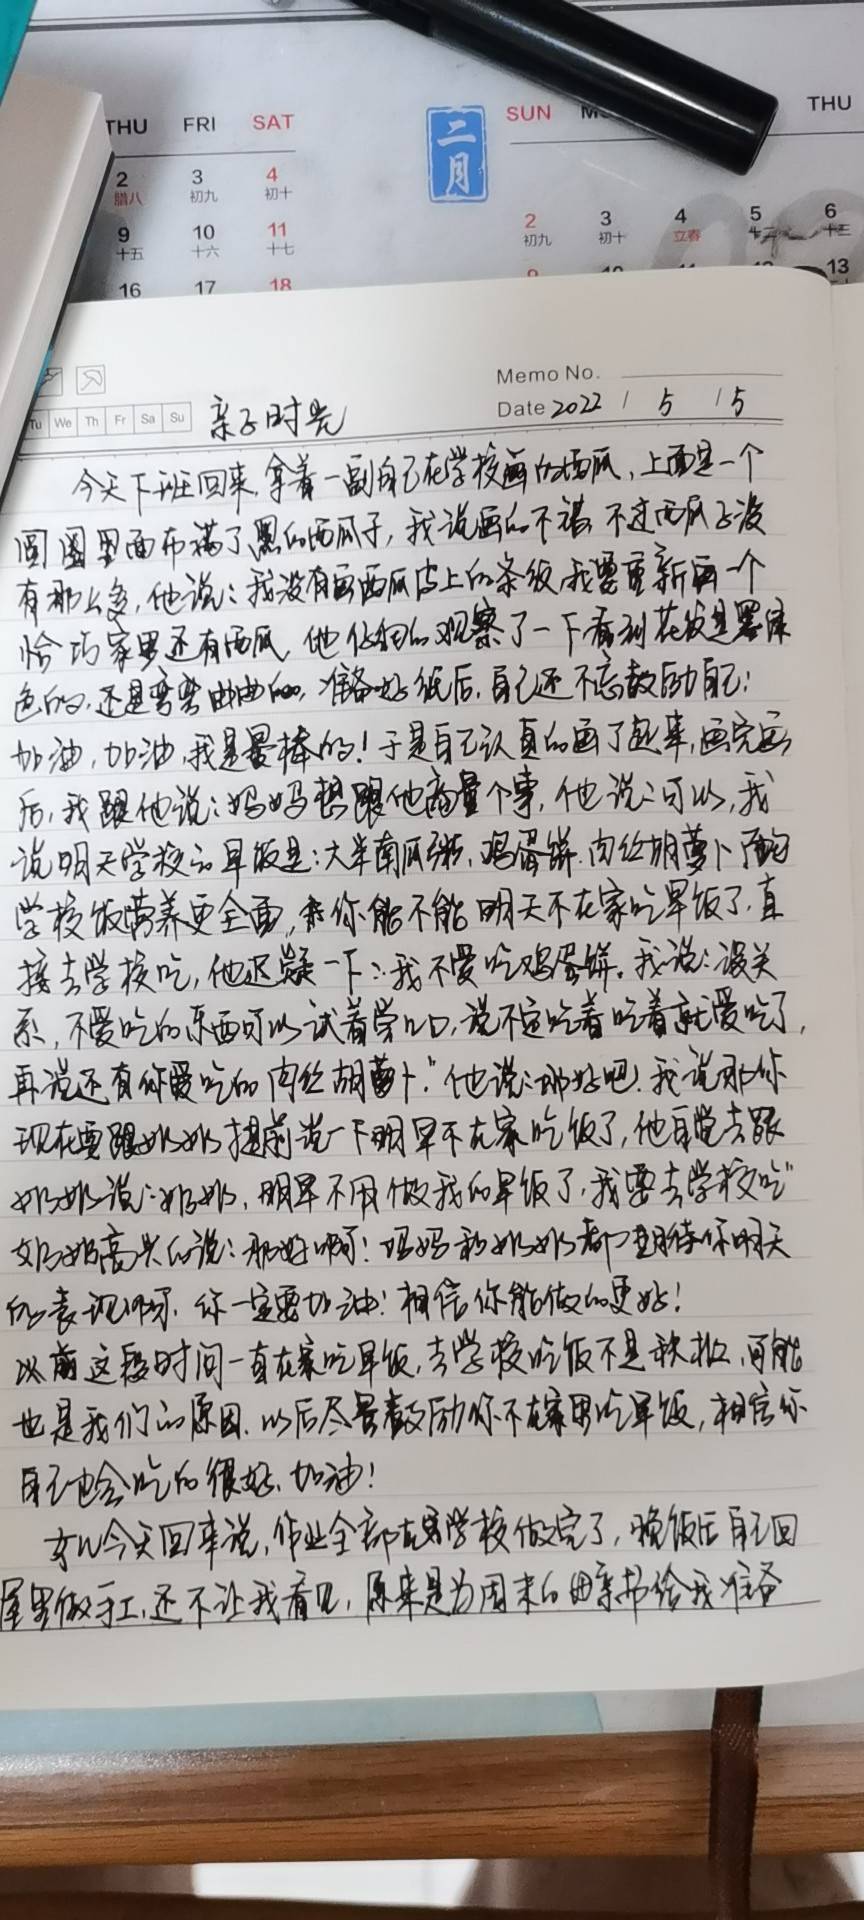 THU FRI SAT
2 3 4
腊八 初九 初十
9 10 11
十五 十六 十七
16 17 18
二月
SUN THU
2 3 4 5 6
初九 初十 立春 十二 十三
13
Memo No.
Date 2022 / 5 / 5
Tu We Th Fr Sa Su
亲子时光
今天下班回来,拿着一副自己在学校画的西瓜,上面是一个
圆圈里面布满了黑的西瓜子,我说画的不错,不过西瓜子没
有那么多,他说:我没有画西瓜皮上的条纹,我要重新画一个
恰巧家里还有西瓜,他仔细的观察了一下看到花纹是墨绿
色的,还是弯弯曲曲的,准备好纸后,自己还不忘鼓励自己:
加油,加油,我是最棒的!于是自己认真的画了起来,画完
后,我跟他说:妈妈想跟他商量个事,他说:可以,我
说明天学校的早饭是:大米南瓜粥,鸡蛋饼,肉丝胡萝卜
学校饭营养更全面,你能不能明天不在家吃早饭了,直
接去学校吃,他迟疑一下:我不爱吃鸡蛋饼。我说:没关
系,不爱吃的东西可以试着尝几口,说不定吃着吃着就爱吃了,
再说还有你爱吃的肉丝胡萝卜."他说:那好吧!我说那你
现在要跟奶奶提前说一下明早不在家吃饭了,他自觉去跟
奶奶说:奶奶,明早不用做我的早饭了,我要去学校吃"
奶奶高兴的说:那好啊!妈妈和奶奶都期待你明天
的表现啊,你一定要加油!相信你能做的更好!
以前这段时间一直在家吃早饭,去学校吃饭不是积极,可能
也是我们的原因.以后尽量鼓励你不在家里吃早饭,相信你
自己也会吃的很好,加油!
女儿今天回来说,作业全部在学校做完了,晚饭后自己回
屋里做手工,还不让我看见,原来是为周末的母亲节给我准备